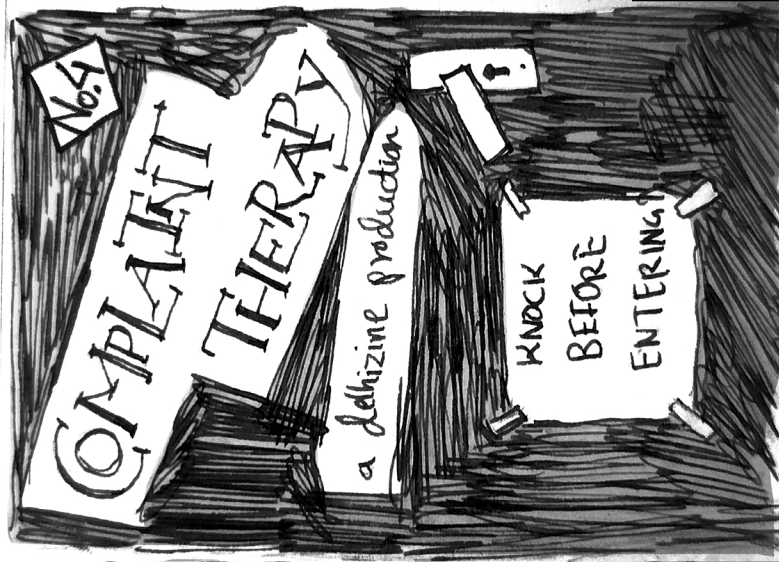 No.4
COMPLAINT
THERAPY
a delhizine production
KNOCK
BEFORE
ENTERING!